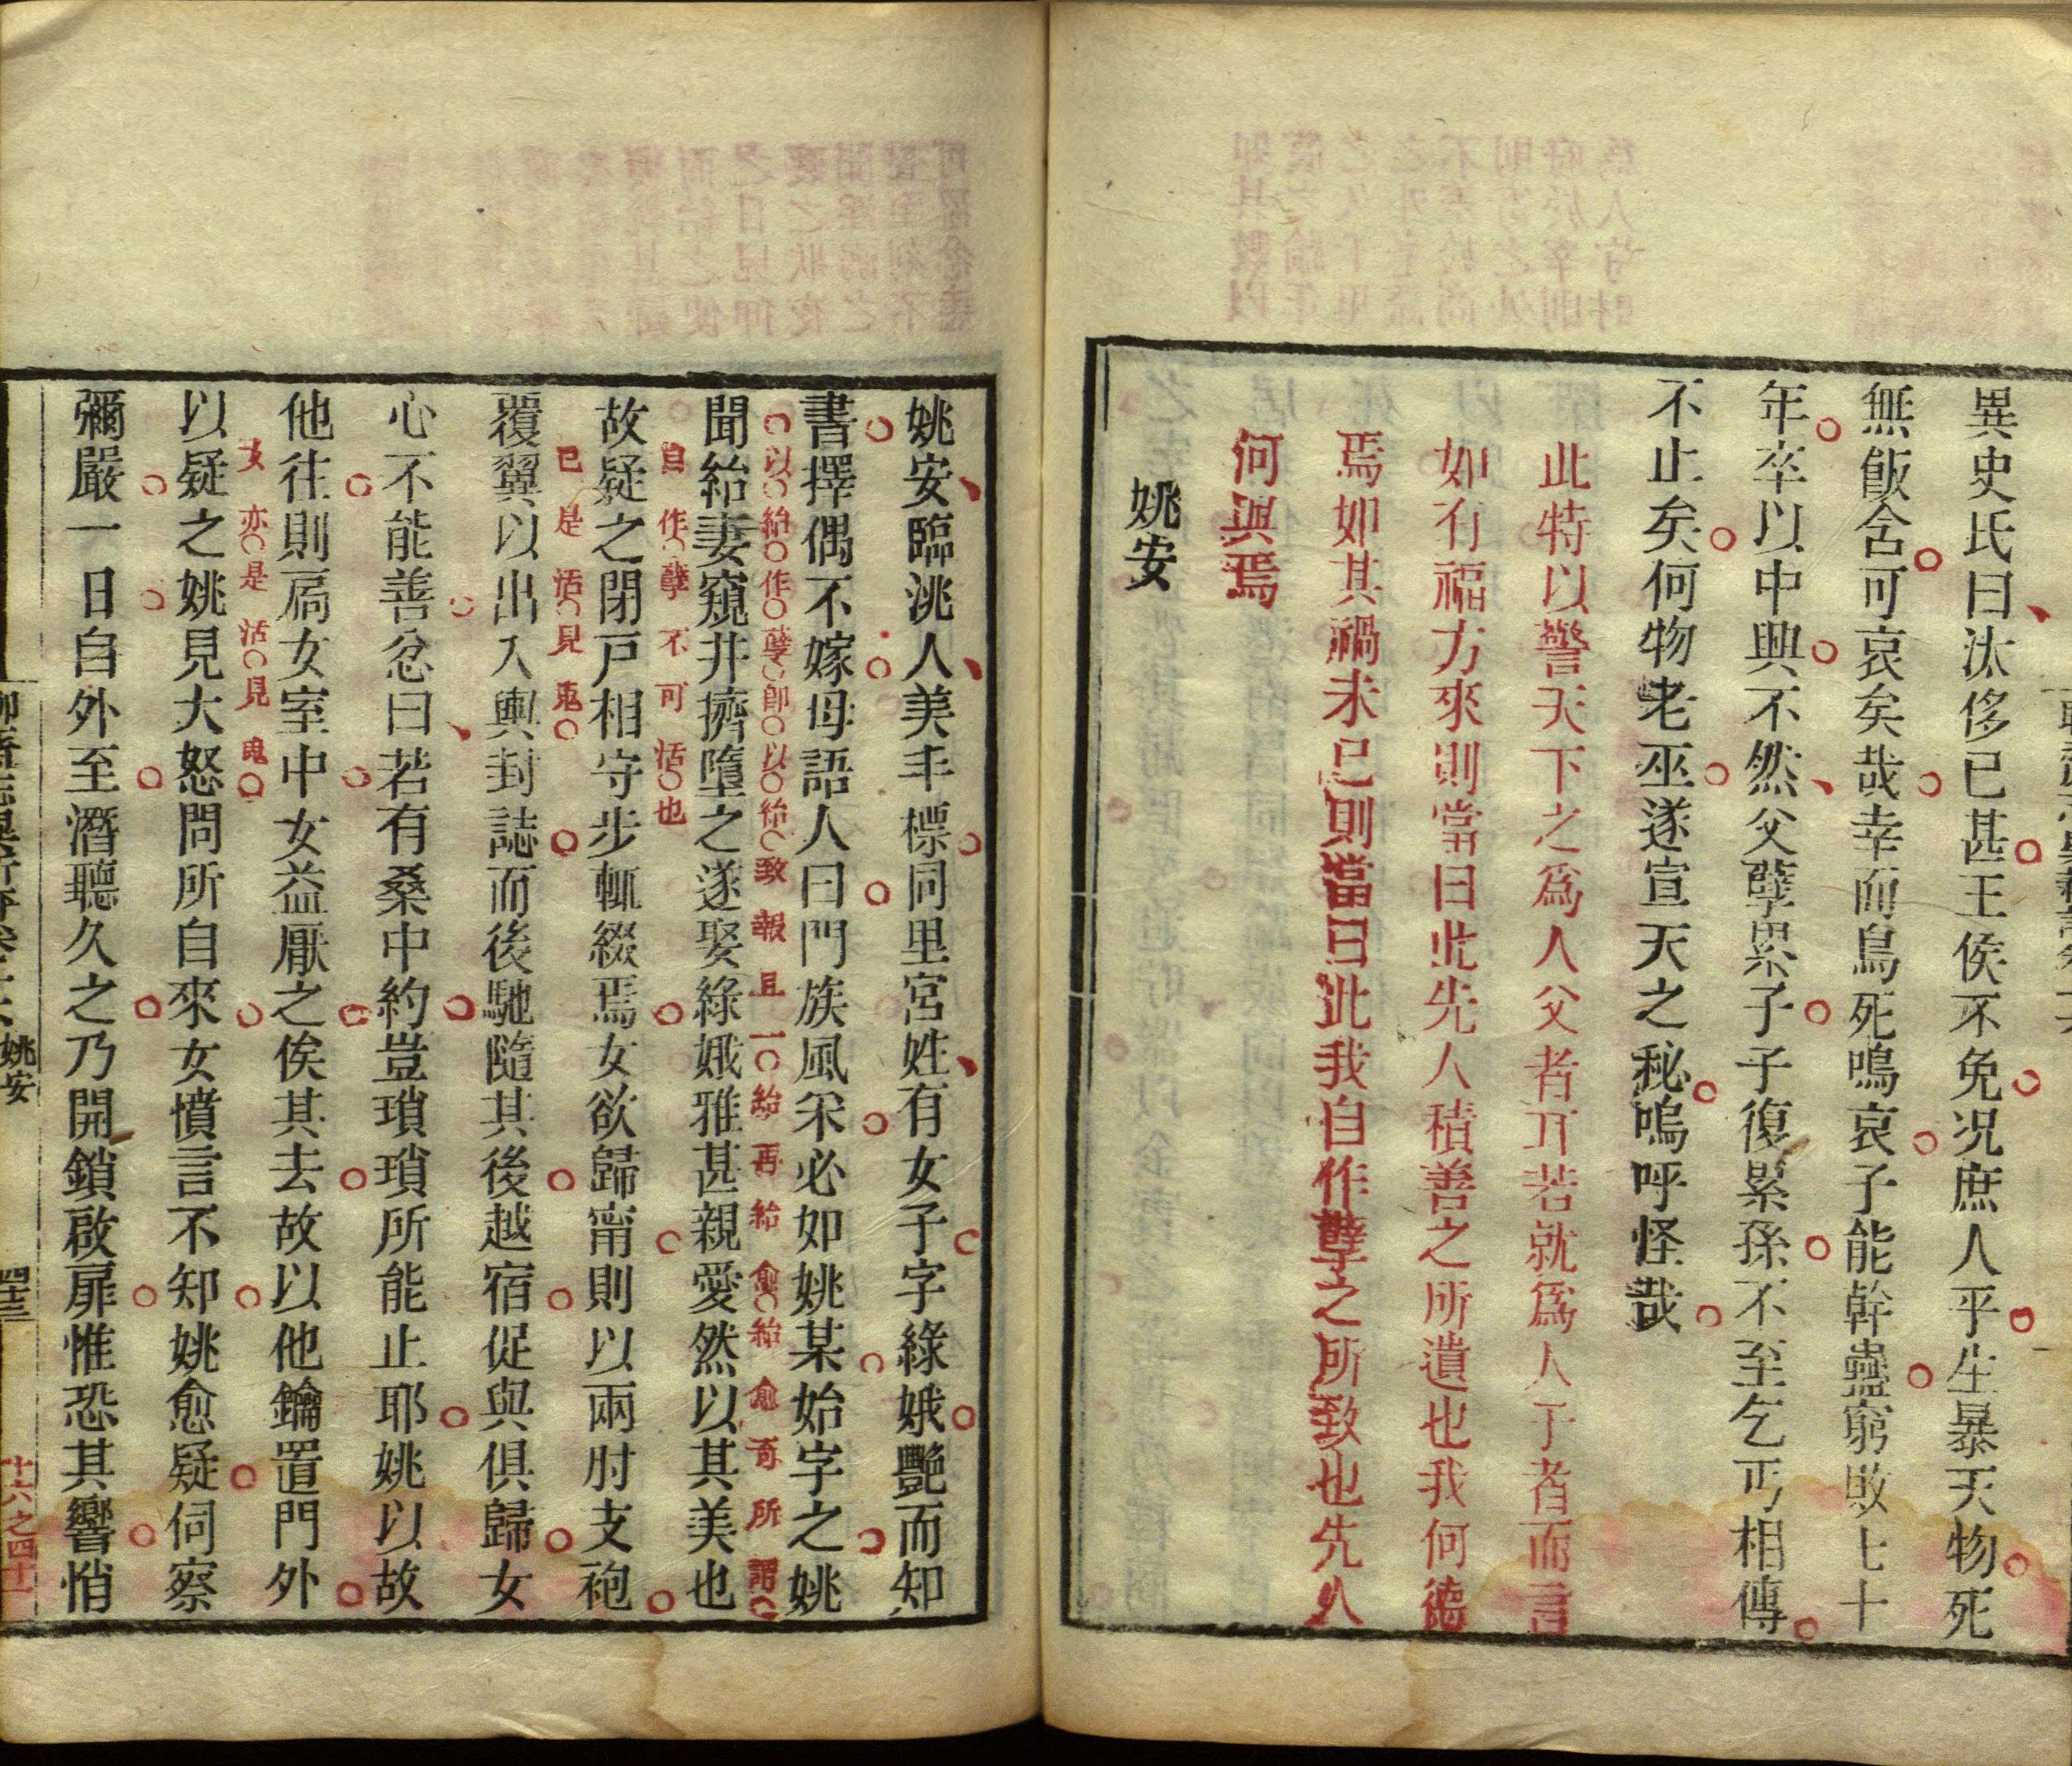 異史氏曰汰侈已甚王侯不免况庶人乎生暴天物死
無飯含可哀矣哉幸而鳥死鳴哀子能幹蠱窮敗七十
年卒以中興不然父孽累子子復累孫不至乞丐相傳
不止矣何物老巫遂宣天之秘嗚呼怪哉
此特以警天下之為人父者耳若就為人子者而言
如有福力來則當曰此先人積善之所遺也我何德
焉如其禍未已則當曰此我自作孽之所致也先人
何與焉
姚安
姚安臨洮人美丰標同里宮姓有女子字綠娥艷而知
書擇偶不嫁母語人曰門族風采必如姚某始字之姚
以紿作孽即以紿致報且一紿再紿愈紿愈奇所謂
聞紿妻窺井擠墮之遂娶綠娥雅甚親愛然以其美也
自作孽不可活也
故疑之閉戶相守步輒綴焉女欲歸甯則以兩肘支袍
已是活見鬼
覆翼以出入輿封誌而後馳隨其後越宿促與俱歸女
心不能善忿曰若有桑中約豈瑣瑣所能止耶姚以故
他往則扃女室中女益厭之俟其去故以他鑰置門外
又亦是活見鬼
以疑之姚見大怒問所自來女憤言不知姚愈疑伺察
彌嚴一日自外至潛聽久之乃開鎖啟扉惟恐其響悄
姚安
四十三
十六之四十一